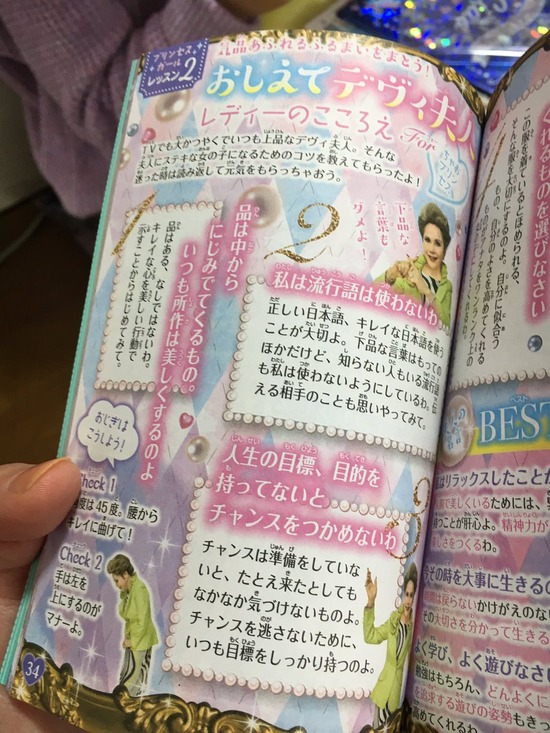 プリンセス
ガール
レッスン2
品あふれるふるまいをまとう!
おしえてデヴィ夫人
レディーのこころえ For
TVでも大かつやくでいつも上品なデヴィ夫人。そんな
夫人にステキな女の子になるためのコツを教えてもらったよ!
迷った時は読み返して元気をもらっちゃおう。
1
品は中から
にじみでてくるもの。
いつも所作は美しくするのよ
品はある、なしではないわ。
キレイな心を美しい行動で
示すことからはじめてみて。
おじぎは
こうしよう!
Check 1
度は45度。腰から
キレイに曲げて!
Check 2
手は左を
上にするのが
マナーよ。
2
下品な
言葉も
ダメよ!
私は流行語は使わないわ
正しい日本語、キレイな日本語を使う
ことが大切よ。下品な言葉はもっての
ほかだけど、知らない人もいる流行語
も私は使わないようにしているわ。伝
える相手のことも思いやってみて。
3
人生の目標、目的を
持ってないと
チャンスをつかめないわ
チャンスは準備をしていな
いと、たとえ来たとしても
なかなか気づけないものよ。
チャンスを逃さないために、
いつも目標をしっかり持つのよ。
34
なれるものを選びなさい
この服を着ているとほめられる、
そんな服を大切にするのよ。自分に似合う
BEST
はリラックスしたことが
ためには、
つことが肝心よ。精神力が
しさをつくるわ。
今その時を大事に生きるの
は戻らないかけがえのな
その大切さを分かって生きる
よく学び、よく遊びなさい
勉強はもちろん、どんよくに
を追求する遊びの姿勢もきっ
高めてくれるわ